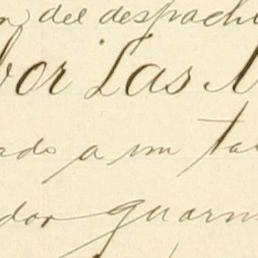 del despach
por Las M
ado a un ta
dor guarn